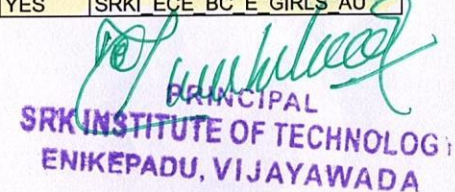 YES SRKI_ECE_BC_E_GIRLS_AU
PRINCIPAL
SRK INSTITUTE OF TECHNOLOG
ENIKEPADU, VIJAYAWADA